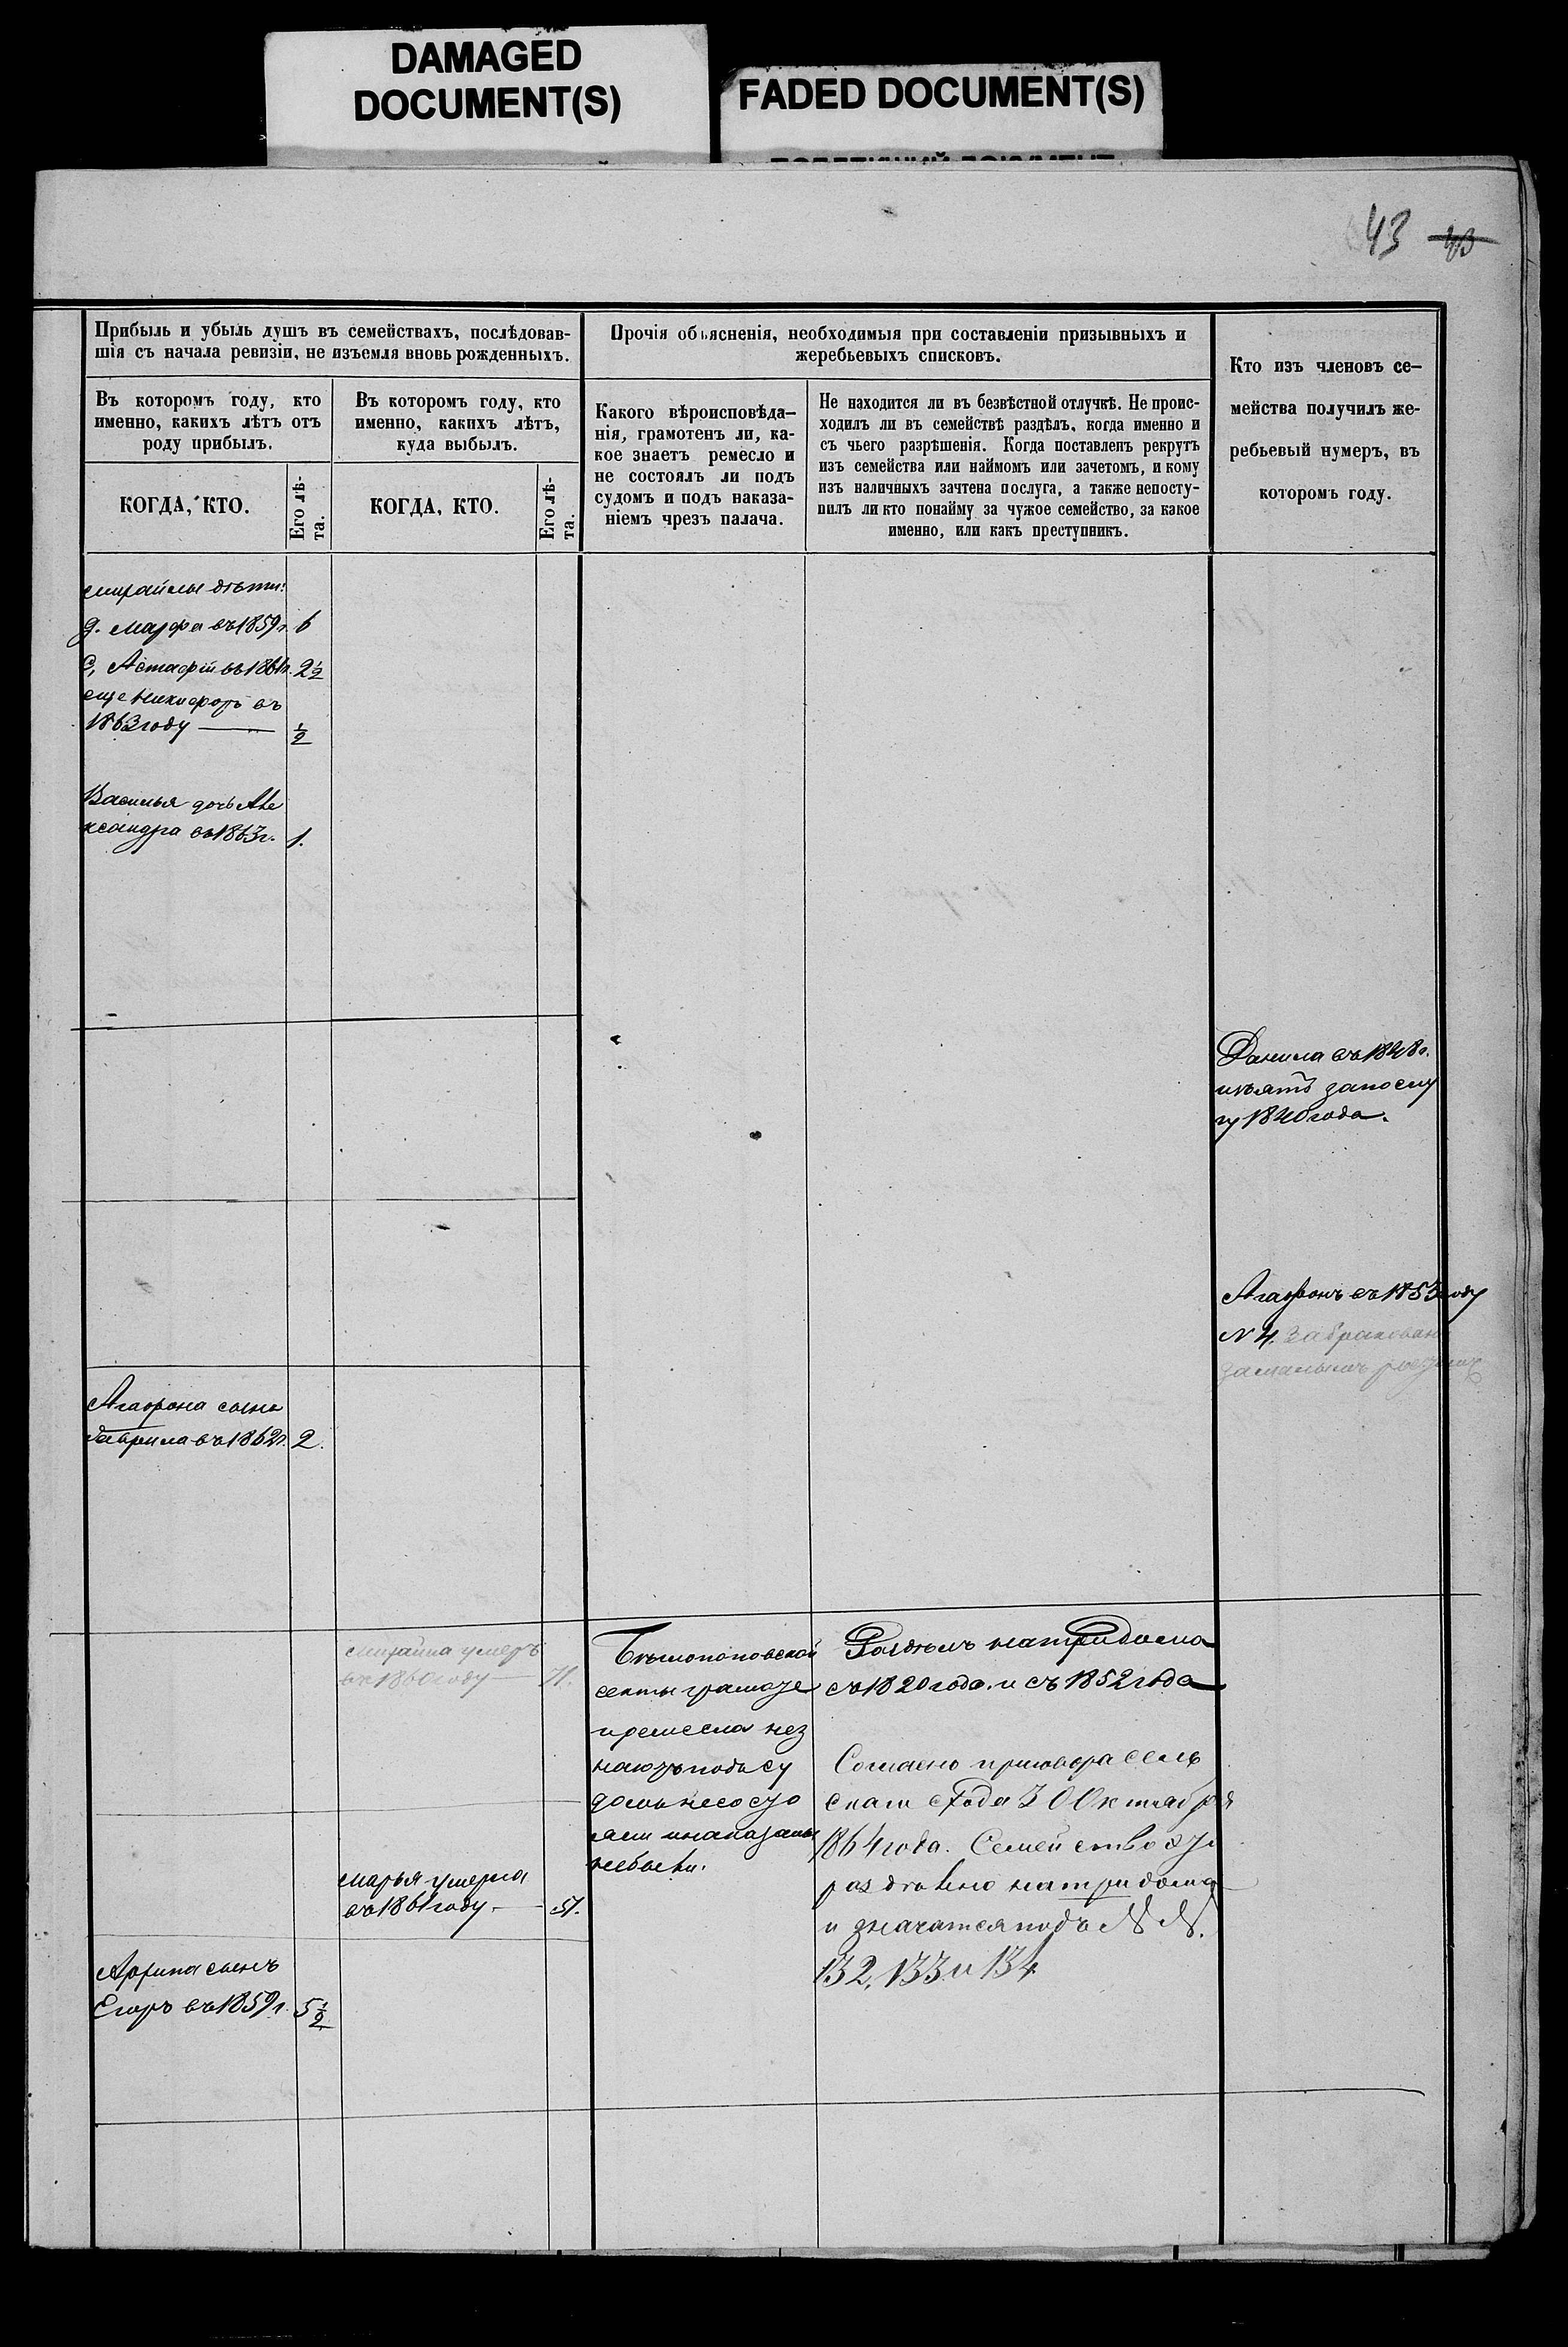 DAMAGED
DOCUMENT(S)
FADED DOCUMENT(S)
43 43
Прибыль и убыль душъ въ семействахъ, послѣдовав-
шія съ начала ревизіи, не изъемля вновь рожденныхъ.
Въ которомъ году, кто
именно, какихъ лѣтъ отъ
роду прибылъ.
КОГДА, КТО.
Его лѣ-
та.
Въ которомъ году, кто
именно, какихъ лѣтъ,
куда выбылъ.
КОГДА, КТО.
Его лѣ-
та.
Прочія объясненія, необходимыя при составленіи призывныхъ и
жеребьевыхъ списковъ.
Какого вѣроисповѣда-
нія, грамотенъ ли, ка-
кое знаетъ ремесло и
не состоялъ ли подъ
судомъ и подъ наказа-
ніемъ чрезъ палача.
Не находится ли въ безвѣстной отлучкѣ. Не проис-
ходилъ ли въ семействѣ раздѣлъ, когда именно и
съ чьего разрѣшенія. Когда поставленъ рекрутъ
изъ семейства или наймомъ или зачетомъ, и кому
изъ наличныхъ зачтена послуга, а также непосту-
пилъ ли кто понайму за чужое семейство, за какое
именно, или какъ преступникъ.
Кто изъ членовъ се-
мейства получилъ же-
ребьевый нумеръ, въ
которомъ году.
Михайлы дѣти:
д. Марфа въ 1859 г. 6
С. Астафій въ 1861 г. 2½
еще Никифоръ въ
1863 году — ½
Василья дочь Але
ксандра въ 1863 г. 1.
Данила въ 1848 г.
изъятъ запослу
гу 1840 года.
Агафонъ въ 1853 году
N 4. забракован
замалымъ
Агафона сынъ
Гаврила въ 1862 г. 2.
Михайла умеръ
въ 1860 году — 71.
Марья умерла
въ 1861 году. — 51.
сынъ
Егоръ въ 1859 г. 5½
Безпоповской
секты грамоте
и ремесла нез
наютъ подъ су
домъ несосто
яли инаказаны
небыли.
Раздѣлъ натри дома
съ 1820 года. и съ 1852 года
Согласно приговора сель
скаго схода 30 Октября
1864 года. Семейство это
раздѣлено натри дома
и значатся подъ N N.
132, 133 и 134